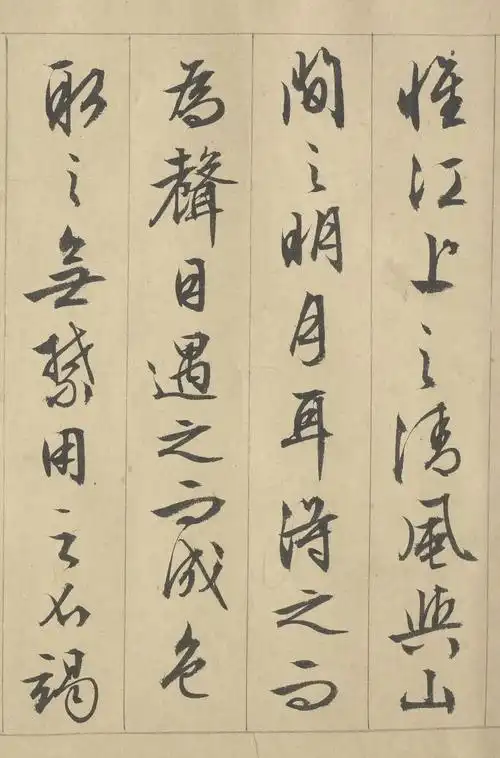 惟江上之清風與山
間之明月耳得之而
為聲目遇之而成色
取之無禁用之不竭